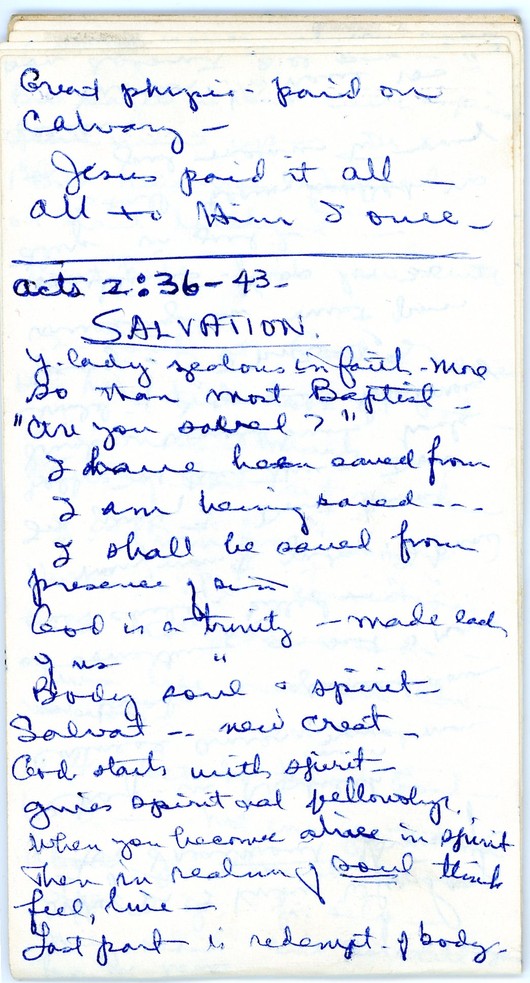 Great physic- paid on
Calvary -
Jesus paid it all -
all to Him I owe -
acts 2:36-43-
SALVATION.
Y lady zealous in faith - more
so than most Baptist -
"are you saved?"
I have been saved from
I am being saved ---
I shall be saved from
presence of sin
God is a trinity - made each
of us "
Body soul & spirit -
Salvat -- new creat -
God starts with spirit -
gives spiritual fellowship.
When you become alive in spirit
Then in realm of soul think
feel, live -
Last part is redempt. of body -